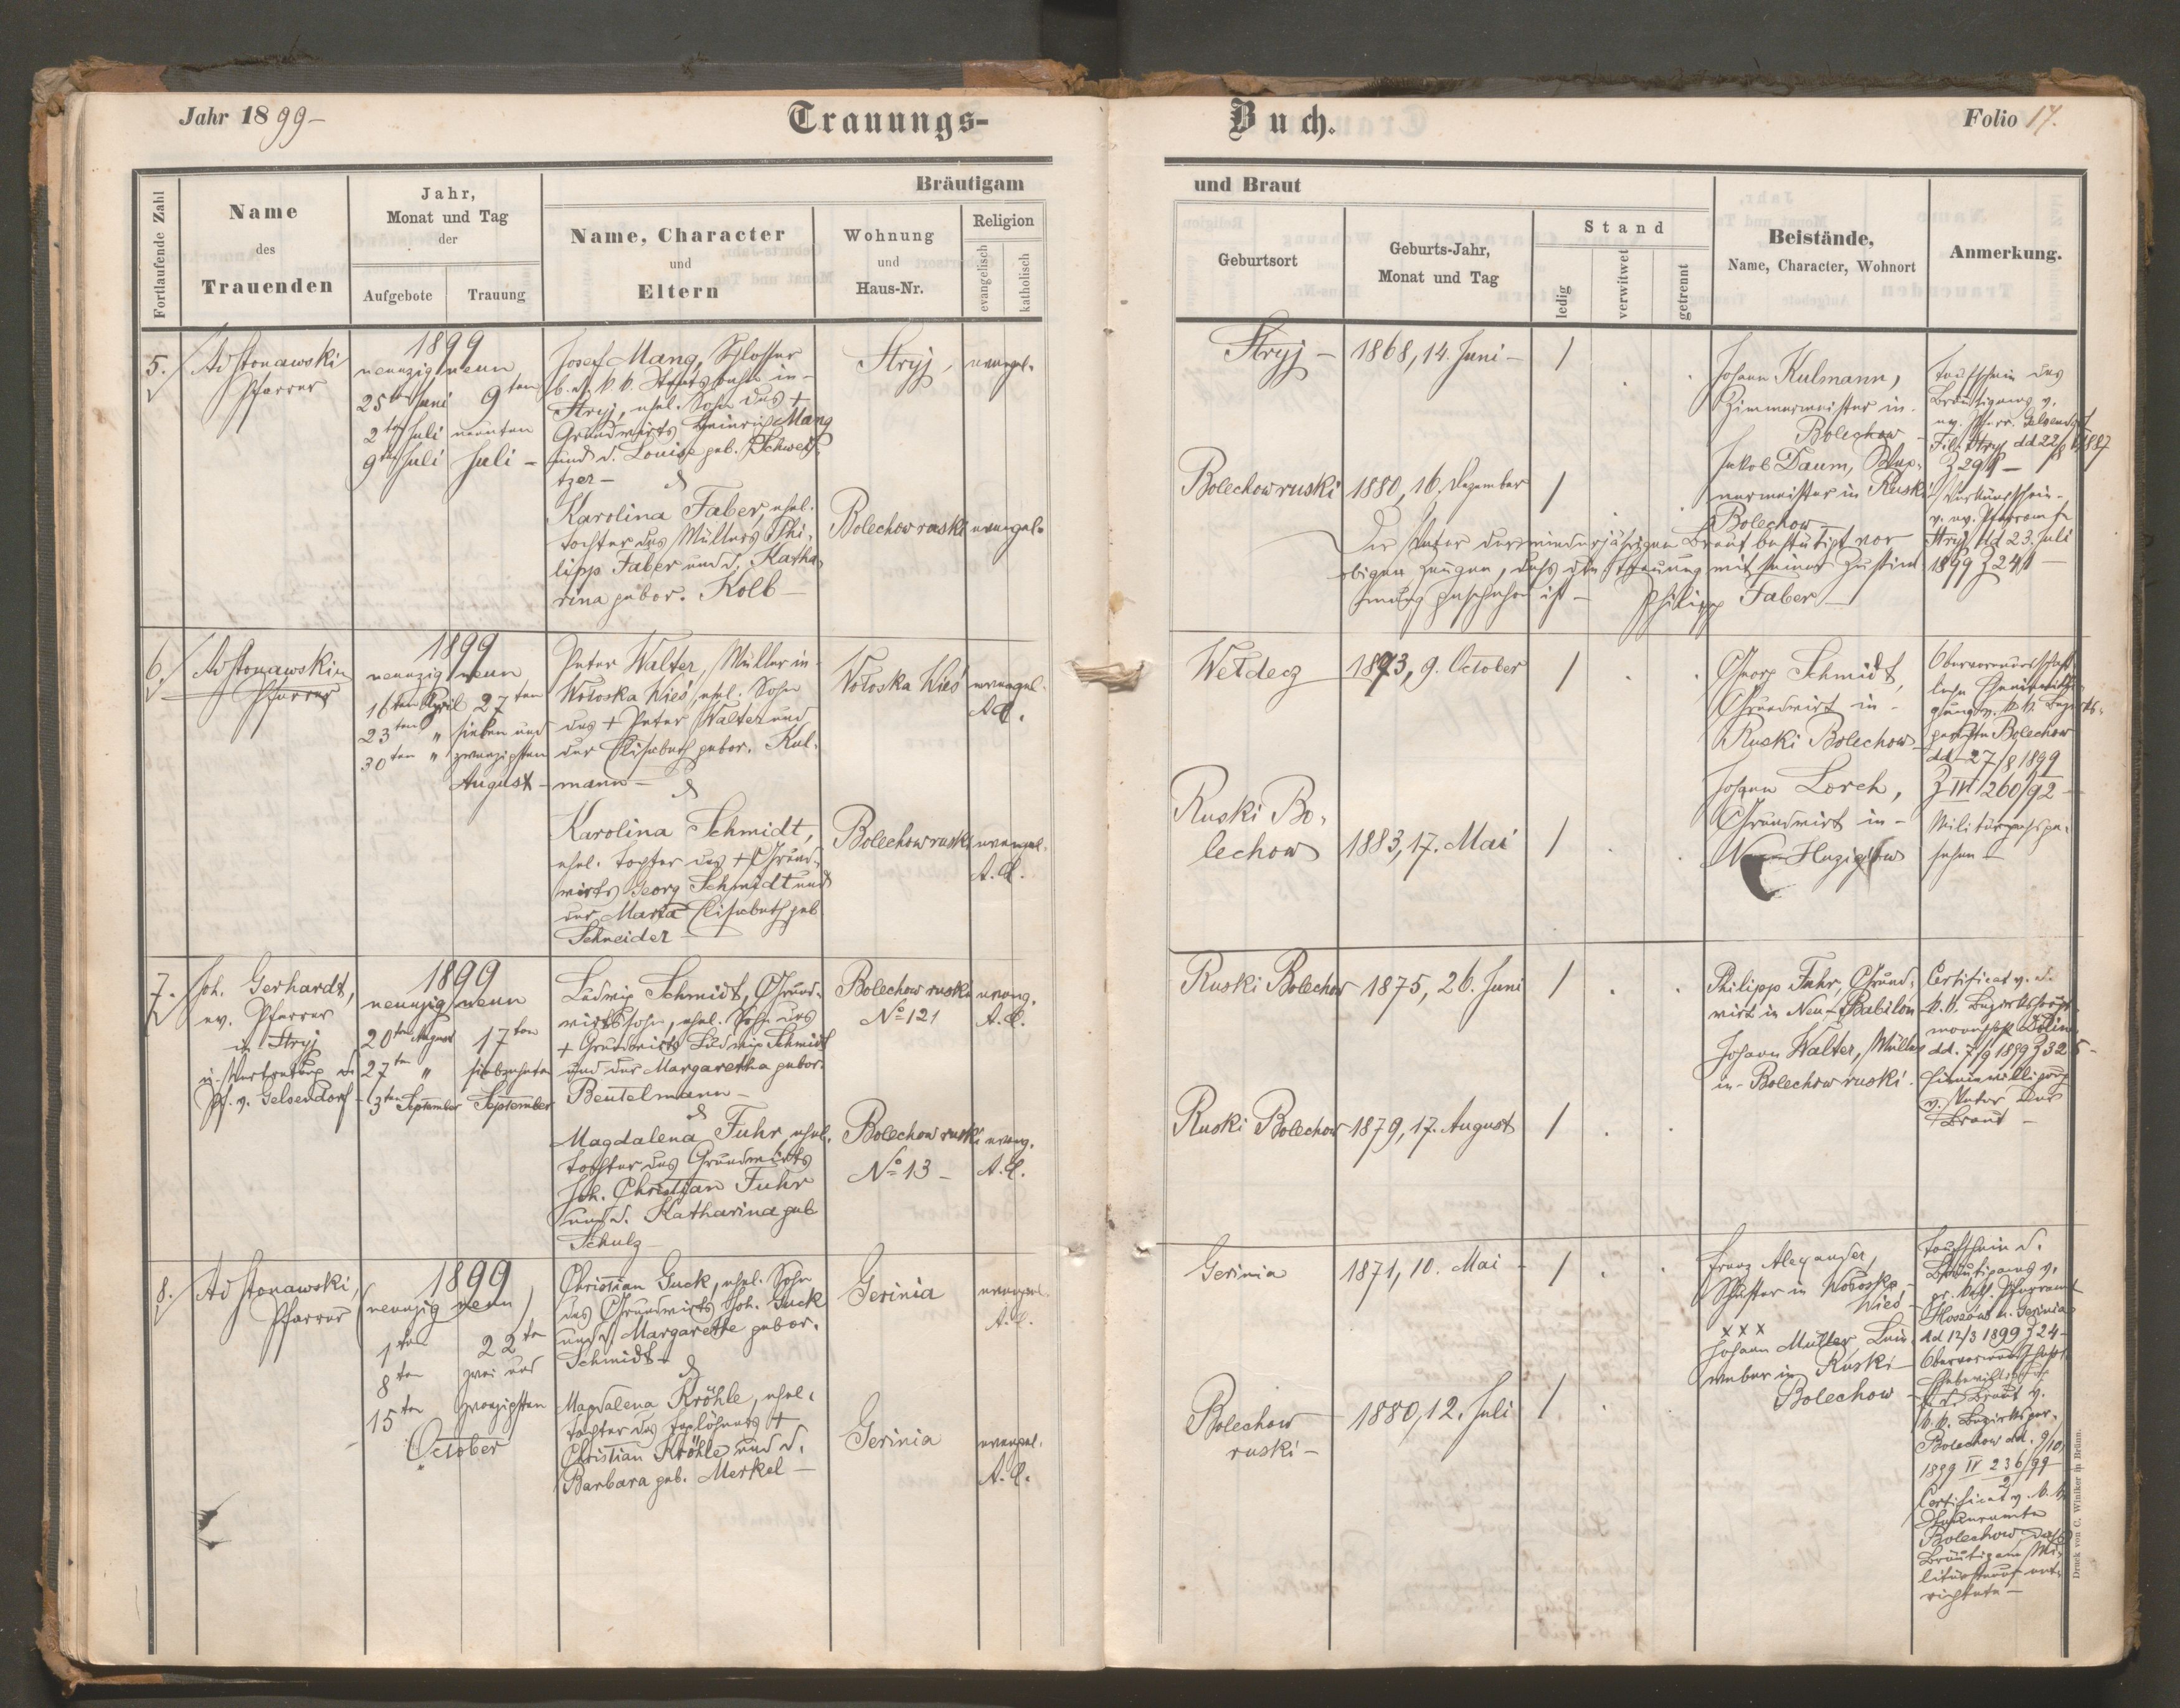 Jahr 1899 –
Trauungs-
Buch.
Folio 17.
Fortlaufende Zahl
Name
des
Trauenden
Jahr,
Monat und Tag
der
Aufgebote
Trauung
Bräutigam
Name, Character
und
Eltern
Wohnung
und
Haus-Nr.
Religion
evangelisch
katholisch
und Braut
Geburtsort
Geburts-Jahr,
Monat und Tag
Stand
ledig
verwitwet
getrennt
Beistände,
Name, Character, Wohnort
Anmerkung.
5.
Ad Stonawski
Pfarrer
1899
neunzig neun
25ten Juni 9ten
2ten Juli neunten
9ten Juli Juli –
Josef Mang, Schlosser
b. d. k. k. Staatsbahn in
Stryj, ehel. Sohn des +
Grundwirts Heinrich Mang
und d. Louise geb. Schweit-
tzer –
&
Karolina Faber, ehel.
Tochter des Müllers Phi-
lipp Faber und d. Katha-
rina gebor. Kolb –
Stryj,
evangel.
Bolechow ruski
evangel.
Stryj –
1868, 14. Juni –
/
Bolechow ruski
1880, 16. Dezember
/
Johann Kulmann,
Zimmermeister in
Bolechow –
Jakob Daum,
in Ruski
Bolechow –
Der Vater der minderjährigen Braut bestätigt vor
obigen Zeugen, dass die Trauung mit seiner Zustim-
mung geschehen ist – Philipp Faber –
Taufschein des
Bräutigams v.
ev. Pfarr. Gelsendorf
Fil. Stryj dd 22/8 1887
Z 291 –
Verkündschein
v. ev. Pfarramte
Stryj dd 23. Juli
1899 Z 241 –
6.
Ad Stonawski
Pfarrer
1899
neunzig neun
16ten April 27ten
23ten " sieben und
30ten " zwanzigsten
August –
Peter Walter, Müller in
Wołoska Wieś, ehel. Sohn
des + Peter Walter und
der Elisabeth gebor. Kul-
mann –
&
Karolina Schmidt,
ehel. Tochter des + Grund-
wirts Georg Schmidt und
der Maria Elisabeth geb
Schneider –
Wołoska Wieś
evangel.
A.C.
Bolechow ruski
evangel.
A.C.
Wełdecz
1873, 9. October
/
Ruski Bo-
lechow
1883, 17. Mai
/
Georg Schmidt,
Grundwirt in –
Ruski Bolechow –
Johann Lorch,
Grundwirt in –
Obervormundschaft-
liche Ehebewilli-
gung v. k. k. Bezirks-
gerichte Bolechow
dd 27/8 1899
Z IV 1260/92 –
Militärpass ge-
sehen –
7.
Joh. Gerhardt,
ev. Pfarrer
in Stryj
in Vertretung d.
Pf. v. Gelsendorf –
1899
neunzig neun
20ten August 17ten
27ten " siebzehnten
3ten September September
Ludwig Schmidt, Grund-
wirtssohn, ehel. Sohn des
+ Grundwirts Ludwig Schmidt
und der Margaretha gebor.
Beutelmann –
&
Magdalena Fuhr, ehel.
Tochter des Grundwirts
Joh. Christian Fuhr
und d. Katharina geb
Schulz –
Bolechow ruski
No 121
evang.
A.C.
Bolechow ruski
No 13 –
evang.
A.C.
Ruski Bolechow
1875, 26. Juni
/
Ruski Bolechow
1879, 17. August
/
Philipp Fuhr, Grund-
wirt in Neu-Babilon
Johann Walter, Müller
in Bolechow ruski.
Certificat v. d.
k. k. Bezirkshaupt-
mannschaft Dolina
dd. 7/9 1899 Z 325 –
Einwilligung
v. Vater der
Braut –
8.
Ad Stonawski,
Pfarrer
1899
(neunzig neun)
1ten 22ten
8ten zwei und
15ten zwanzigsten
October
Christian Guck, ehel. Sohn
des Grundwirts Joh. Guck
und d. Margarethe gebor.
Schmidt –
&
Magdalena Kröhle, ehel.
Tochter des Taglöhners +
Christian Kröhle und d.
Barbara geb. Merkel –
Gerinia
evangel.
A.C.
Gerinia
evangel.
A.C.
Gerinia
1871, 10. Mai –
/
Bolechow
ruski –
1880, 12. Juli
/
Franz Alexander,
Schuster in Wołoska
Wieś –
x x x
Johann Müller, Lein-
weber in Ruski
Bolechow –
Taufschein d.
Bräutigams v.
gr. kath. Pfarramt
Hoszów u. Gerinia
dd 12/3 1899 Z 24 –
Obervormundschaft.
Ehebewilligung
f. d. Braut v.
k. k. Bezirksger.
Bolechow dd. 9/10
1899 IV 236/99
2
Certificat v. k. k.
Steueramte
Bolechow dass
Bräutigam Mi-
litärsteuer ent-
richtete –
Druck von C. Winiker in Brünn.